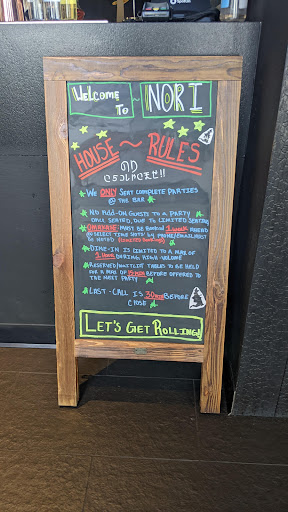 Welcome
To
~
NORI
HOUSE ~ RULES
We ONLY Seat Complete Parties
@ the Bar
No Add-On Guests to a Party
once Seated, Due to Limited Seating
Omakase Must be Booked 1 week Ahead
Dine-in is Limited to a Max of
1 Hour During High-Volume
Reserved/Waitlist Tables to be Held
for a Max of 15min Before Offered to
the Next Party
Last-Call is 30min Before
Close
Let's Get Rolling!